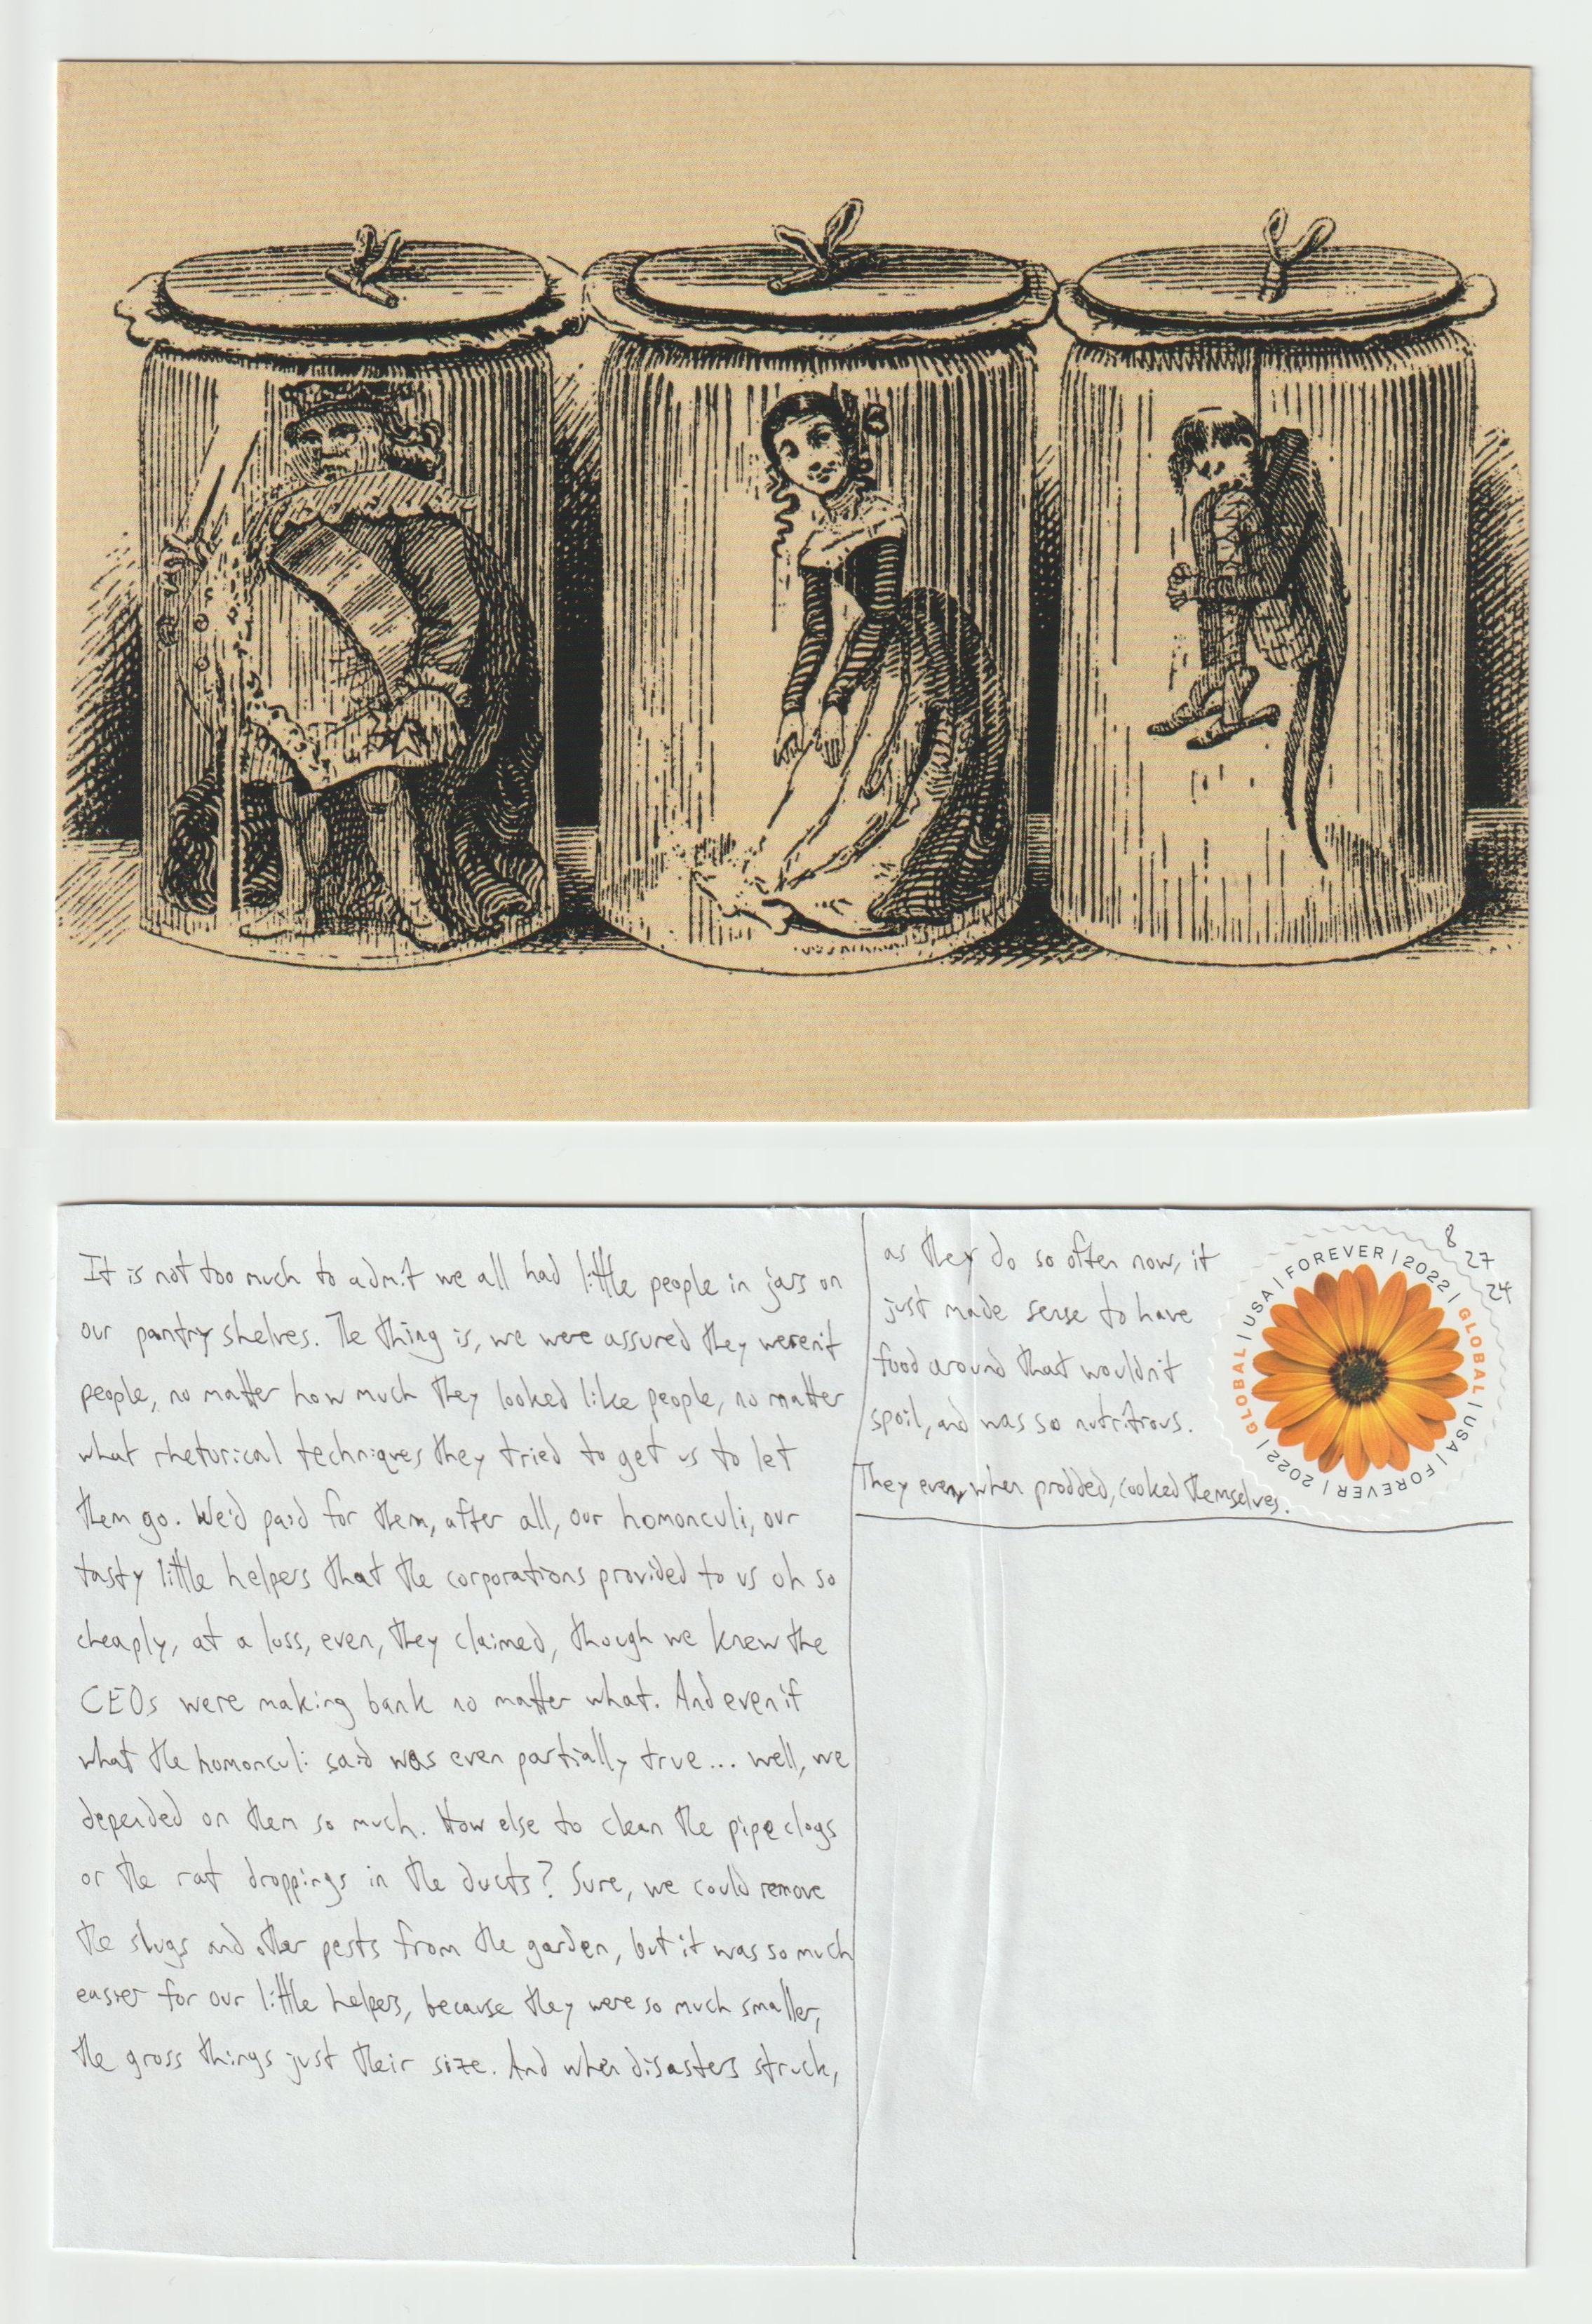 It is not too much to admit we all had little people in jars on
our pantry shelves. The thing is, we were assured they weren't
people, no matter how much they looked like people, no matter
what rhetorical techniques they tried to get us to let
them go. We'd paid for them, after all, our homonculi, our
tasty little helpers that the corporations provided to us oh so
cheaply, at a loss, even, they claimed, though we knew the
CEOs were making bank no matter what. And even if
what the homonculi said was even partially true... well, we
depended on them so much. How else to clean the pipe clogs
or the rat droppings in the ducts? Sure, we could remove
the slugs and other pests from the garden, but it was so much
easier for our little helpers, because they were so much smaller,
the gross things just their size. And when disasters struck,
as they do so often now, it
just made sense to have
food around that wouldn't
spoil, and was so nutritious.
They even, when prodded, cooked themselves.
GLOBAL | USA | FOREVER | 2022 | GLOBAL | USA | FOREVER | 2022 |
8
27
24